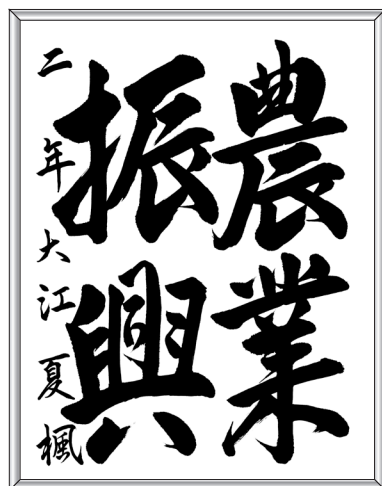 農業
振興
二年大江夏楓